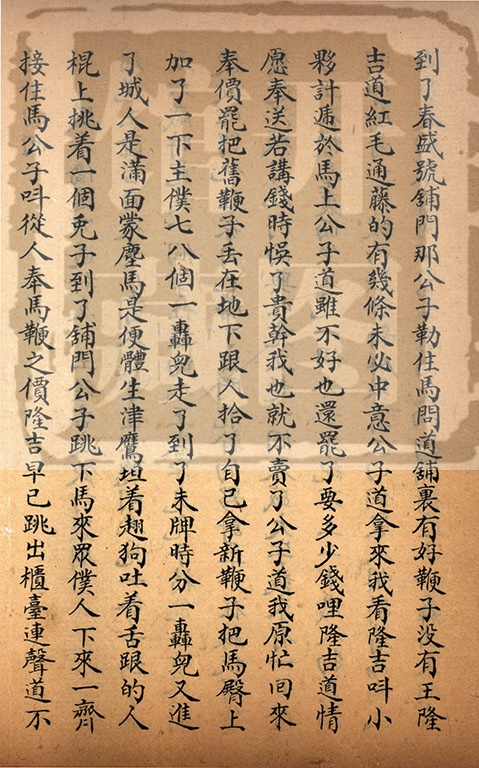 到了春盛號舖門那公子勒住馬問道舖裏有好鞭子没有王隆
吉道紅毛通藤的有幾條未必中意公子道拿來我看隆吉呌小
夥計遞於馬上公子道雖不好也還罷了要多少錢哩隆吉道情
愿奉送若講錢時悞了貴幹我也就不賣了公子道我原忙回來
奉價罷把舊鞭子丢在地下跟人拾了自己拿新鞭子把馬臀上
加了一下主僕七八個一轟兒走了到了未牌時分一轟兒又進
了城人是滿面蒙塵馬是便體生津鷹坦着翅狗吐着舌跟的人
棍上挑着一個兎子到了舖門公子跳下馬來眾僕人下來一齊
接住馬公子呌從人奉馬鞭之價隆吉早已跳出櫃臺連聲道不